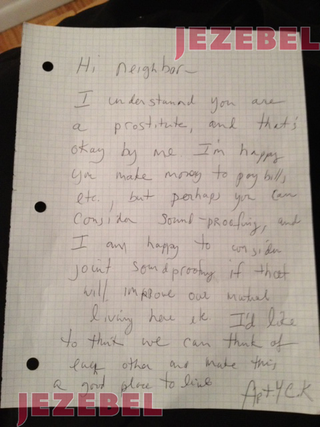 JEZEBEL
Hi neighbor—
I understand you are
a prostitute, and that's
okay by me I'm happy
you make money to pay bills
etc., but perhaps you can
consider sound-proofing, and
I am happy to consider
joint soundproofing if that
will improve our mutual
living here etc. I'd like
to think we can think of
each other and make this
a good place to live
Apt. 4C. K
JEZEBEL